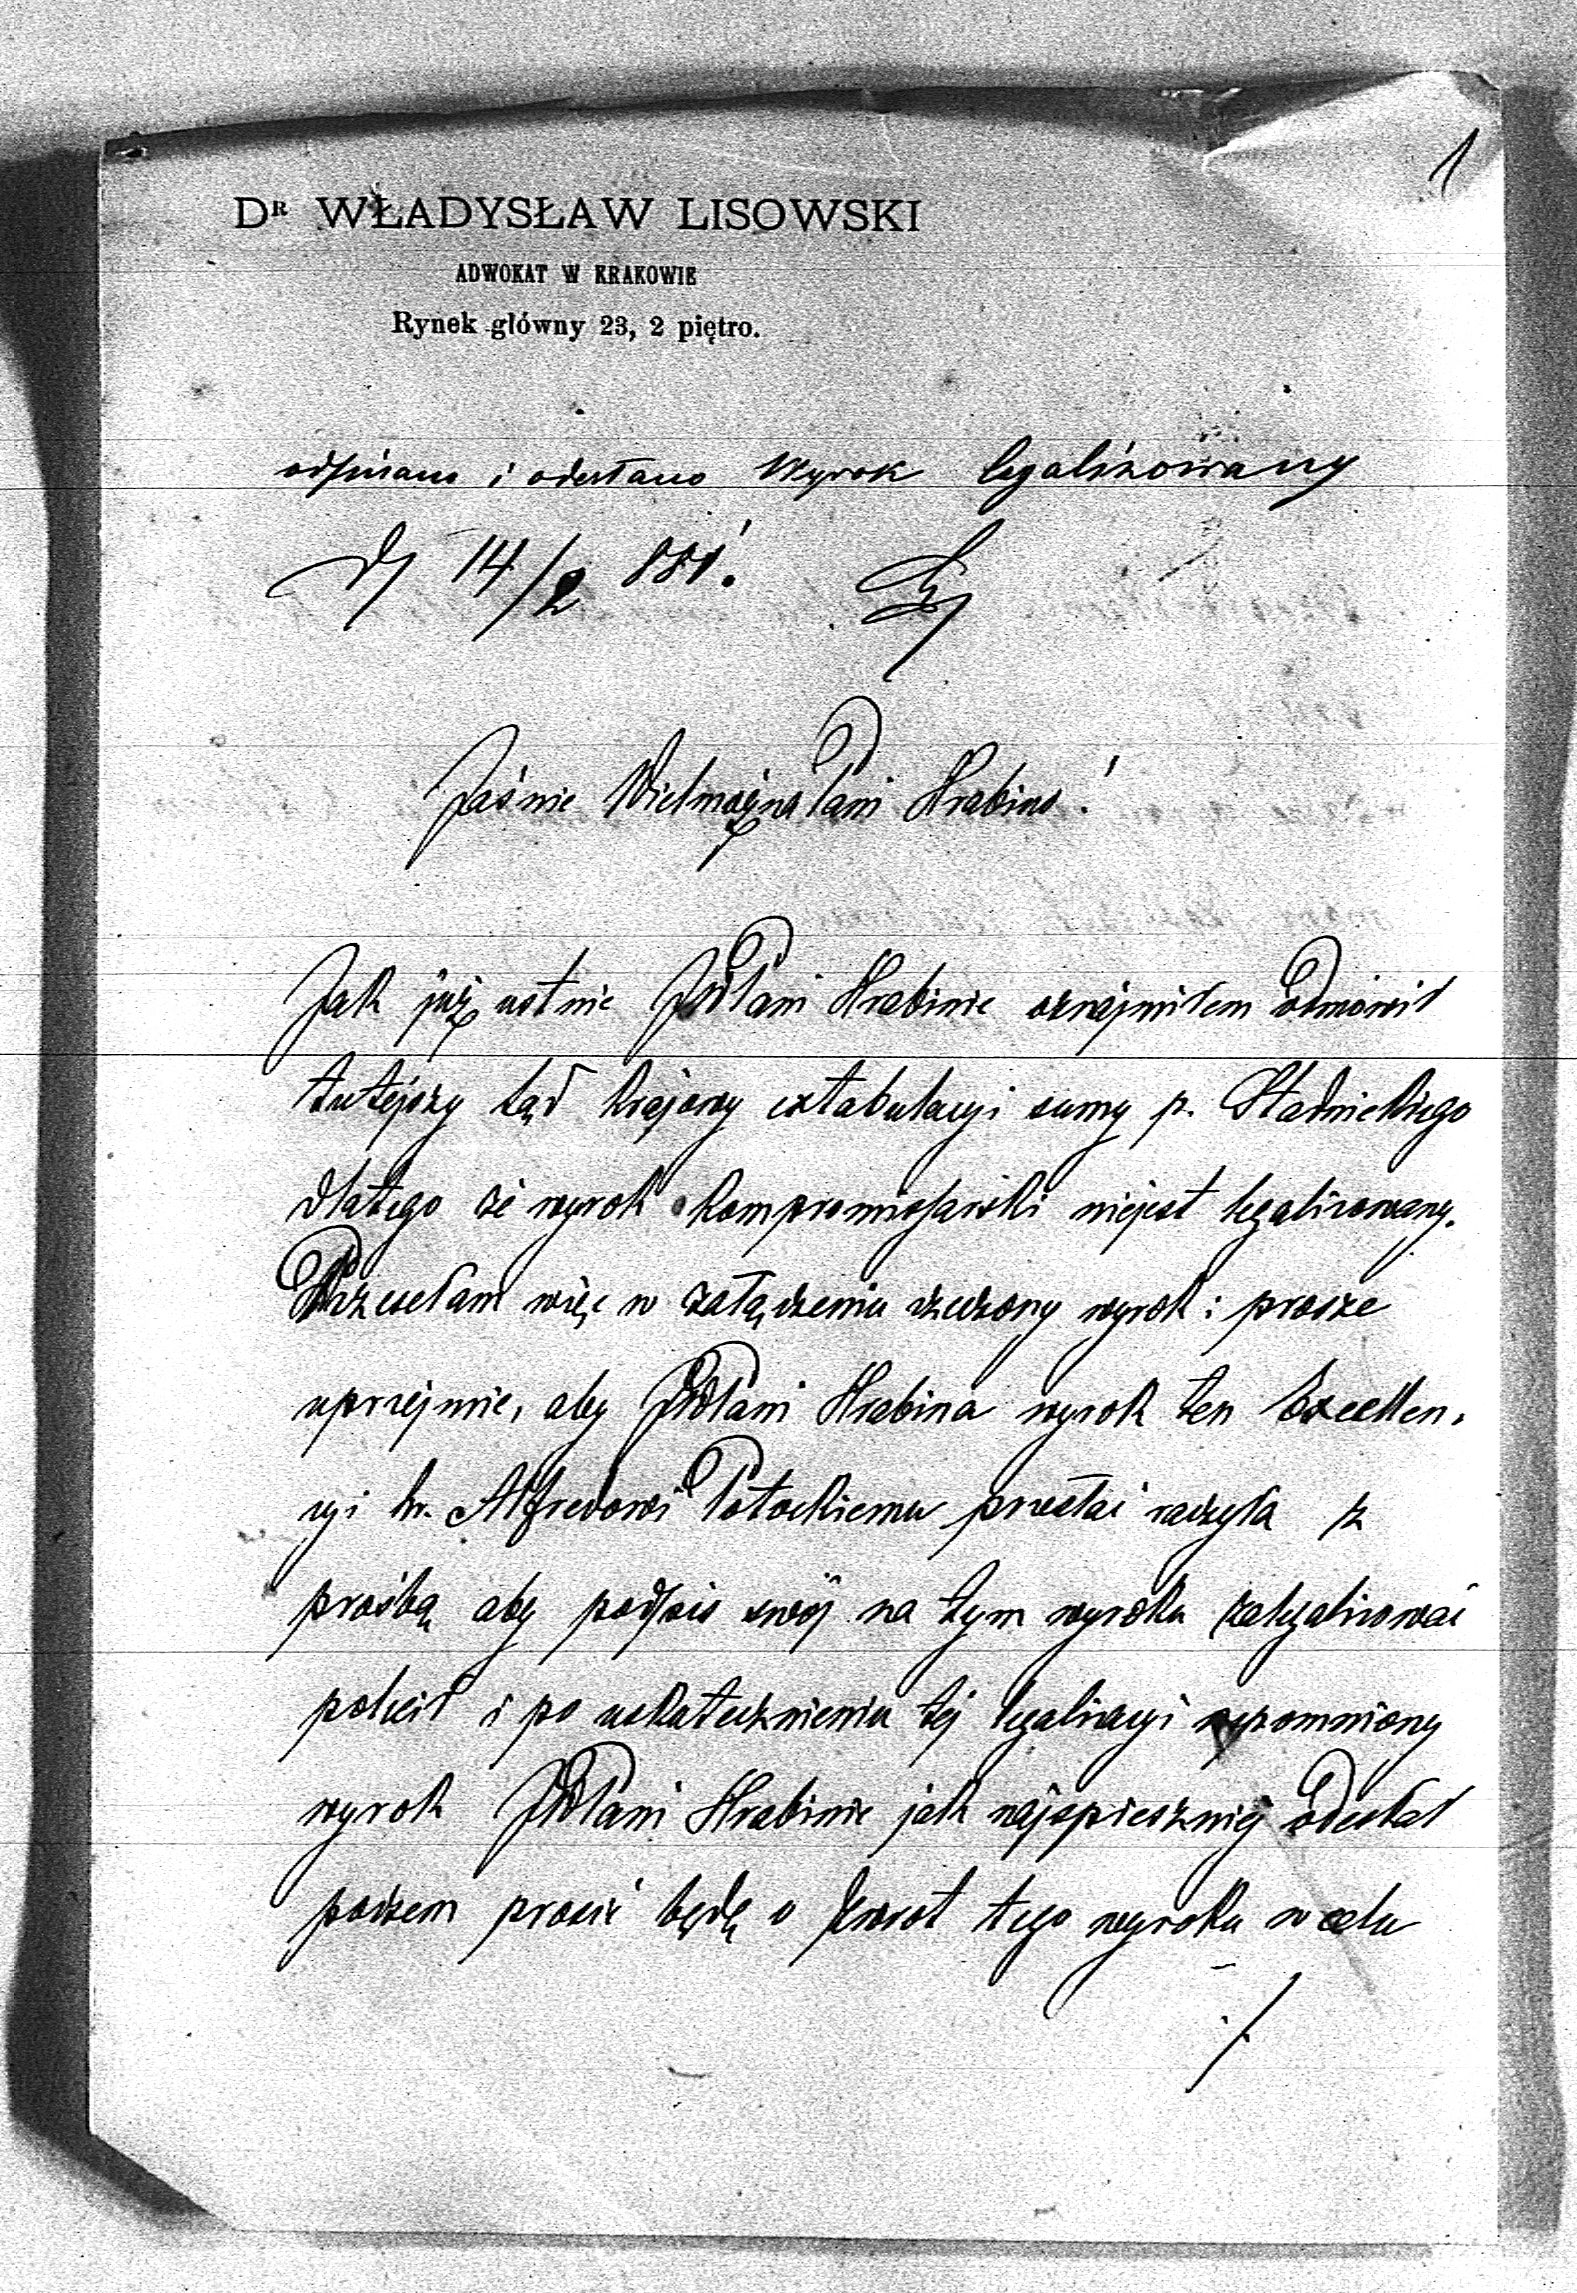 1
DR WŁADYSŁAW LISOWSKI
ADWOKAT W KRAKOWIE
Rynek główny 23, 2 piętro.
odpisano i odesłano Wyrok legalizowany
d 14/2 881.
Jaśnie Wielmożna Pani Hrabino!
Jak już ustnie JWPani Hrabinie oznajmiłem odmówił
tutejszy Sąd krajowy extabulacyi sumy p. Stadnickiego
dlatego że wyrok kompromisarski niejest legalizowany.
Przesełam więc w załączeniu rzeczony wyrok i prosze
uprzejmie, aby JWPani Hrabina wyrok ten Excellen-
cyi hr. Alfredowi Potockiemu przesłać raczyła z
prośbą aby podpis swój na tym wyroku zalegalizować
polecił i po uskutecznieniu tej legalizacyi wspomniony
wyrok JWPani Hrabinie jak najspieszniej odesłał
poczem prosić będę o zwrot tego wyroku w celu
./.